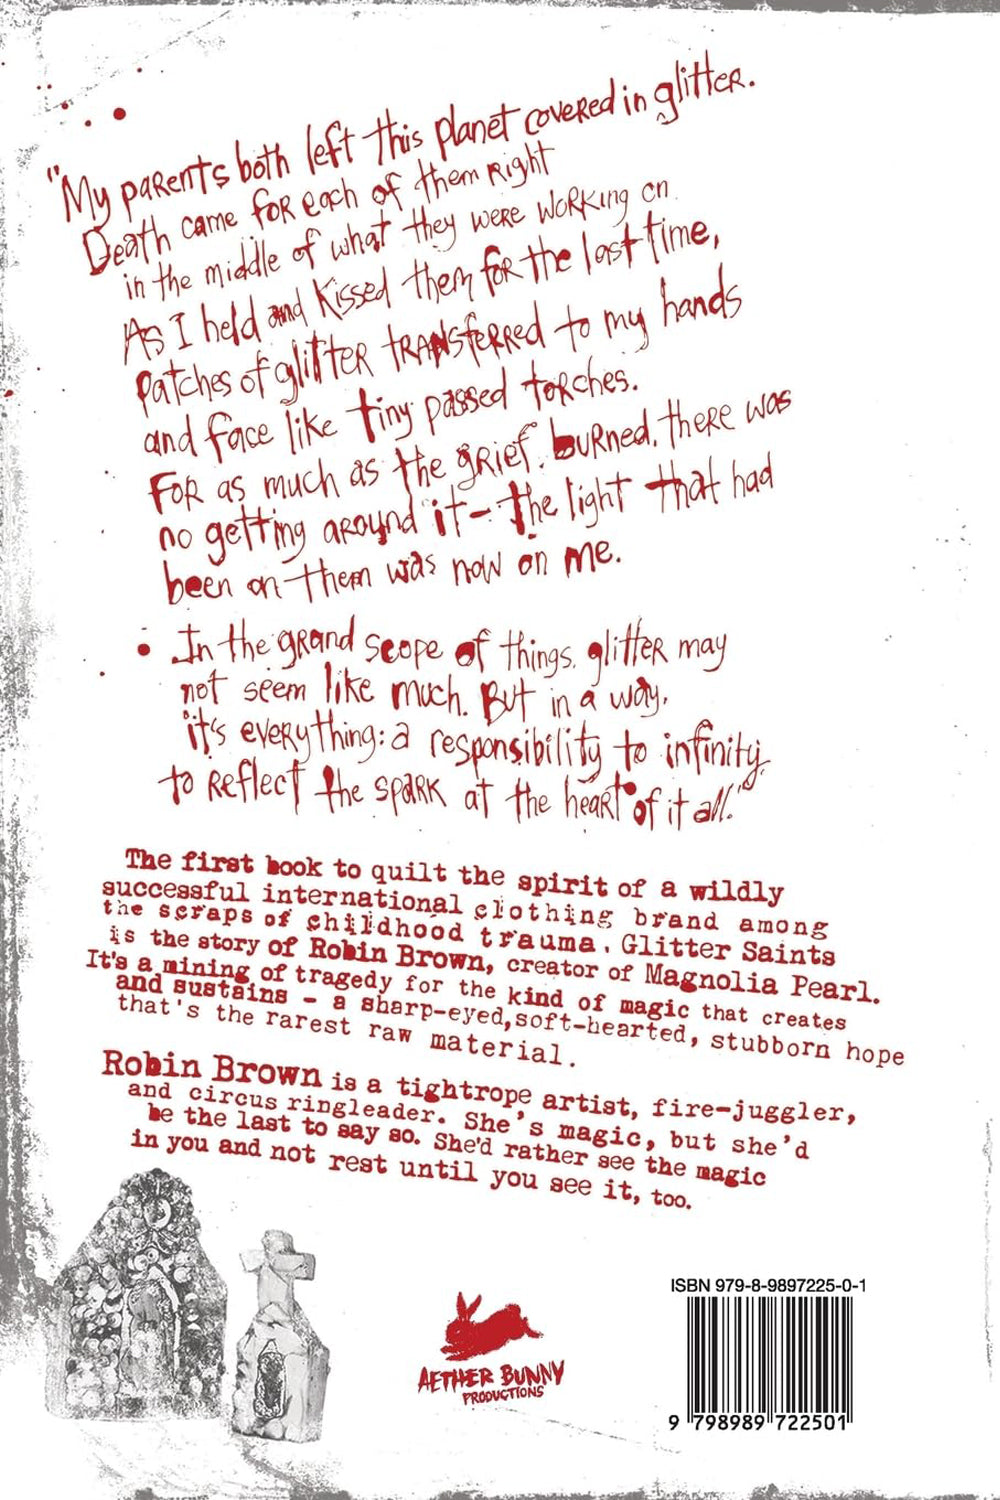 "My parents both left this planet covered in glitter.
Death came for each of them right
in the middle of what they were working on.
As I held and kissed them for the last time,
patches of glitter transferred to my hands
and face like tiny passed torches.
For as much as the grief burned, there was
no getting around it - the light that had
been on them was now on me.
In the grand scope of things, glitter may
not seem like much. But in a way,
it's everything: a responsibility to infinity,
to reflect the spark at the heart of it all."
The first book to quilt the spirit of a wildly
successful international clothing brand among
the scraps of childhood trauma, Glitter Saints
is the story of Robin Brown, creator of Magnolia Pearl.
It's a mining of tragedy for the kind of magic that creates
and sustains - a sharp-eyed, soft-hearted, stubborn hope
that's the rarest raw material.
Robin Brown is a tightrope artist, fire-juggler,
and circus ringleader. She's magic, but she'd
be the last to say so. She'd rather see the magic
in you and not rest until you see it, too.
ISBN 979-8-9897225-0-1
AETHER BUNNY
PRODUCTIONS
9 798989 722501